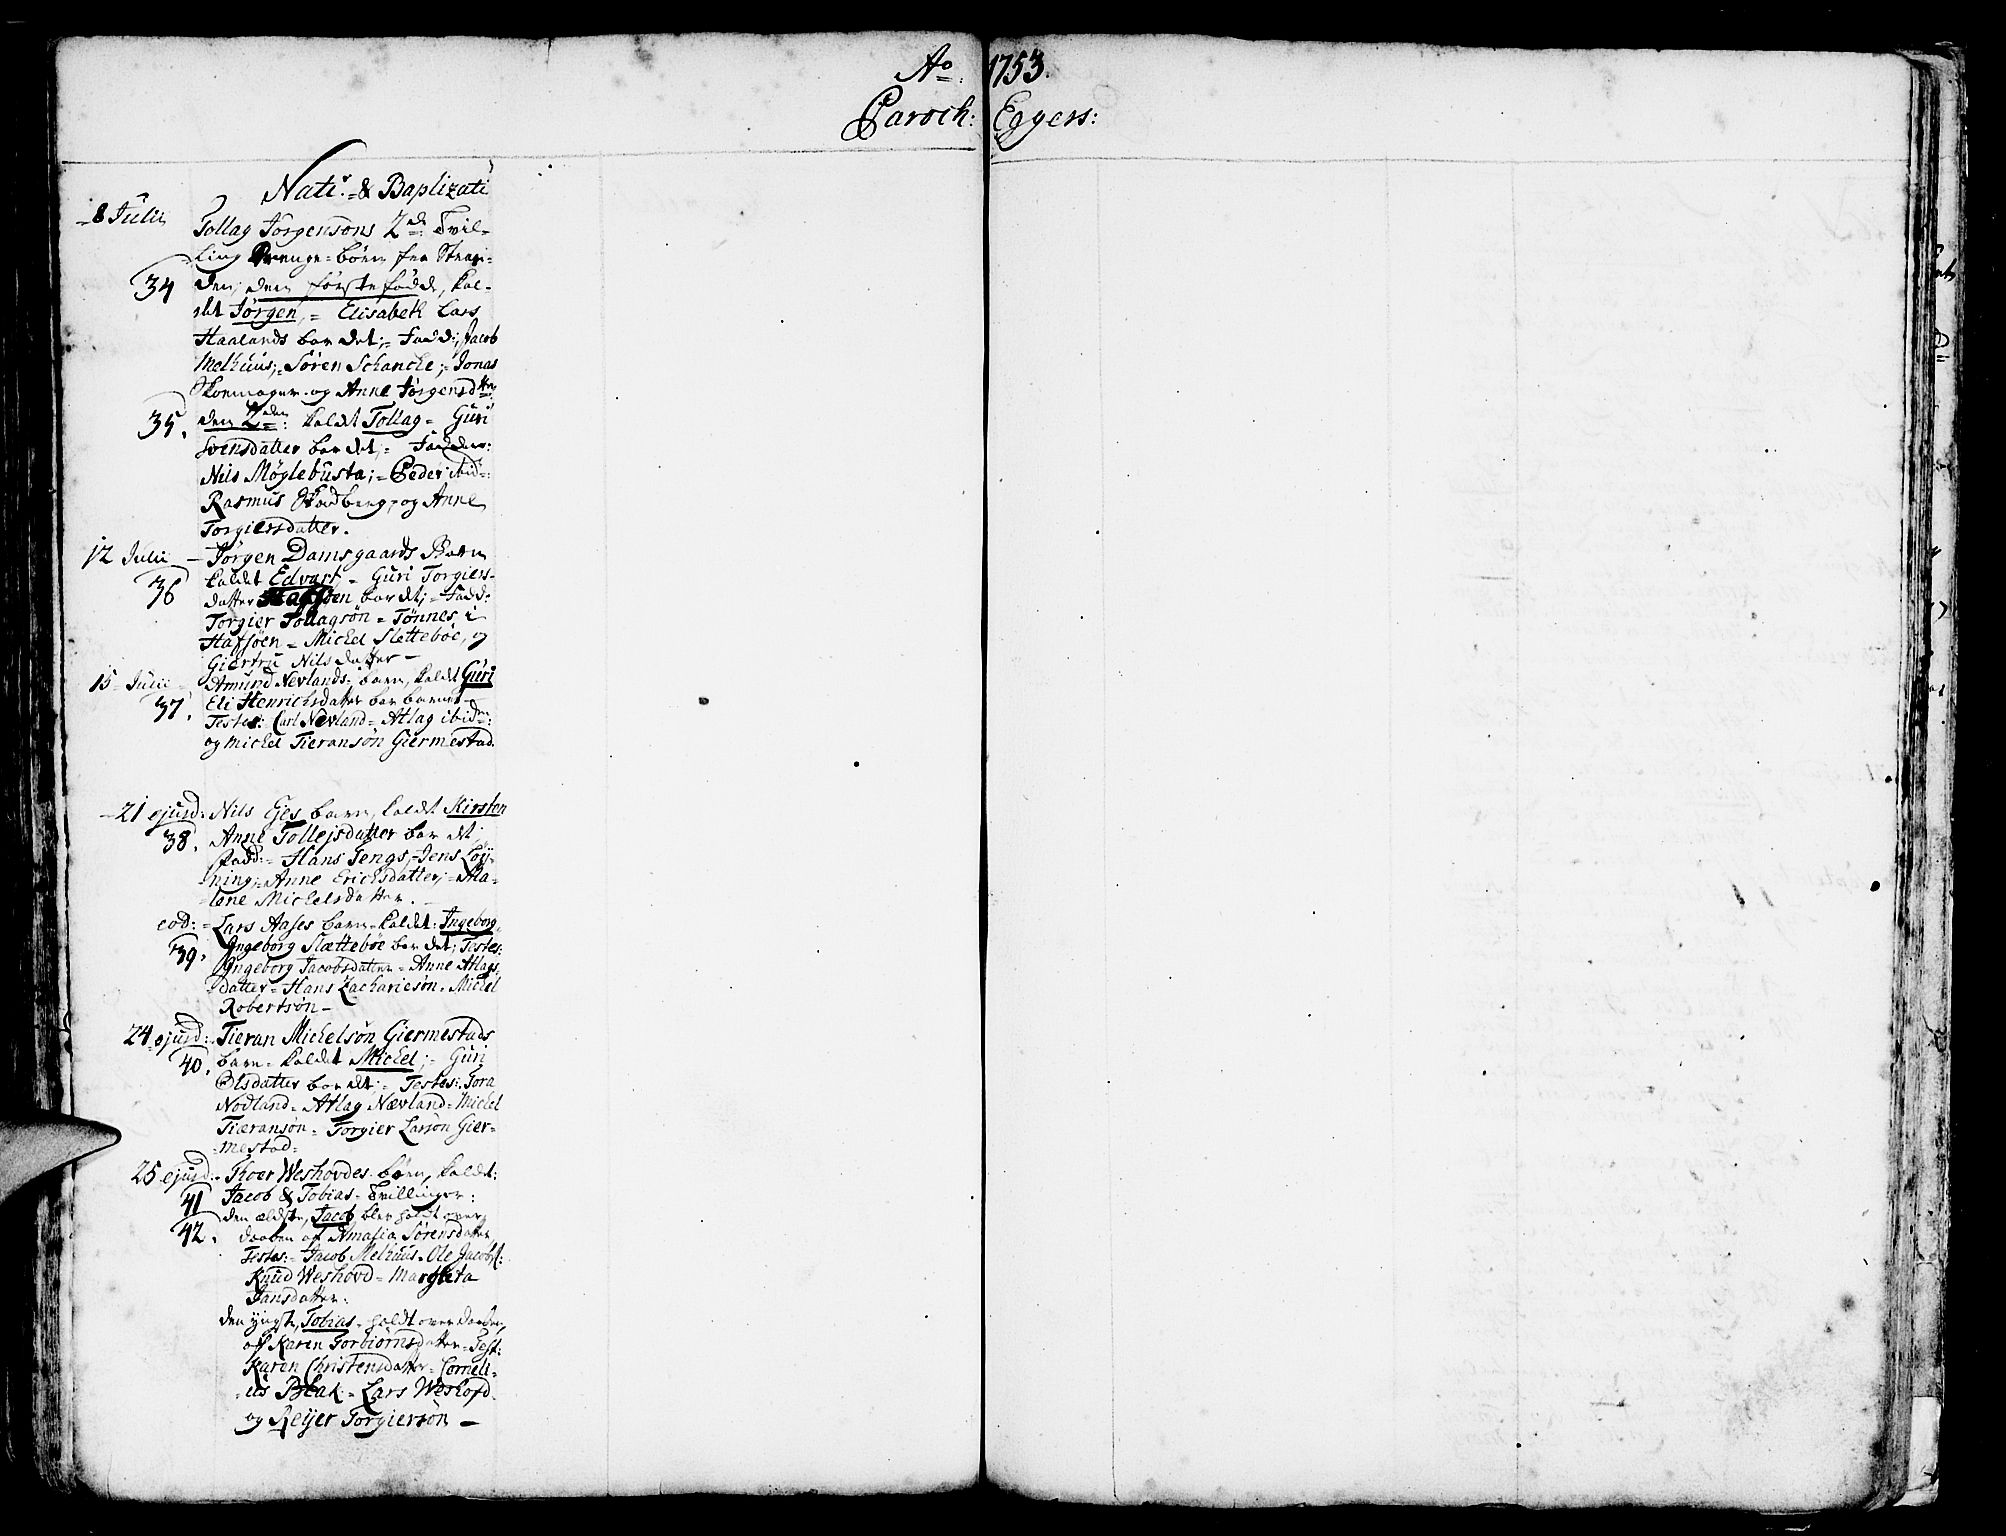 Ao. 1753.
Paroch: Eggers:
Nati & Baptizati
8 Julii Tollag Jørgensøns 2de Tvil-
ling Drenge-børn fra Stran-
34 den; den første fødde, kal-
det Jørgen, = Elisabeth Lars
Haalands bar det; = Fadd:, Jacob
Melhuus; = Søren Schancke; = Jonas
Skoemager og Anne Jørgensdttr
35. den 2den: kaldt Tollag = Guri
Svensdatter bar det; = Faddere:
Nils Møglebusta; = Peder ibid:
Rasmus Skadberg, og Anne
Torgiersdatter.
12 Julii - Jørgen Damsgaards Barn
36 kaldet Edvart, = Guri Torgiers-
datter Hafsøen bar det; = Fadd:
Torgier Tollagsøn = Tønnes i
Hafsøen = Michel Slettebøe, og
Giertru Nils datter -
15 Julii - Amund Nevlands barn, kaldt Guri
37. Eli Henrichsdatter bar barnet -
Testes: Carl Nevland = Atlag ibidm:
og Michel Tieransøn Giermestad.
21 ejusd: Nils Ejes barn, kaldt Kirsten
38. Anne Tollejsdatter bar det;
Fadd: = Hans Tengs, = Jens Løy-
ning; = Anne Erichsdatter; = Ma-
lene Michelsdatter. -
eod: = Lars Aases barn = kaldet: Ingeborg,
39. Ingeborg Slættebøe bar det; Testes:
Ingeborg Jacobsdatter = Anne Atlags
datter = Hans Zachariesøn. Michel
Robertsøn -
24 ejusd: Tieran Michelsøn Giermestads
40. barn = kaldet Michel; = Guri
Olsdatter bar det; = Testes: Tora
Nodland = Atlag Nævland = Michel
Tiæransøn = Torgier Larsøn Gier-
mestad =
25 ejusd: - Thoer Weshovdes børn, kaldt:
41 Jacob & Tobias = Tvillinger:
den ældste, Jacob, blev holdt over
42. daaben af Amalia Sørensdatter,
Testes: = Jacob Melhuus = Ole Jacobs:
Knud Weshovd = Margreta
Jansdatter:
den yngste, Tobias = holdt over Daaben,
af Karen Torbiørnsdatter = Test:
Karen Christensdatter = Corneli-
us Blak = Lars Weshofd.
og Reijer Torgiersøn -